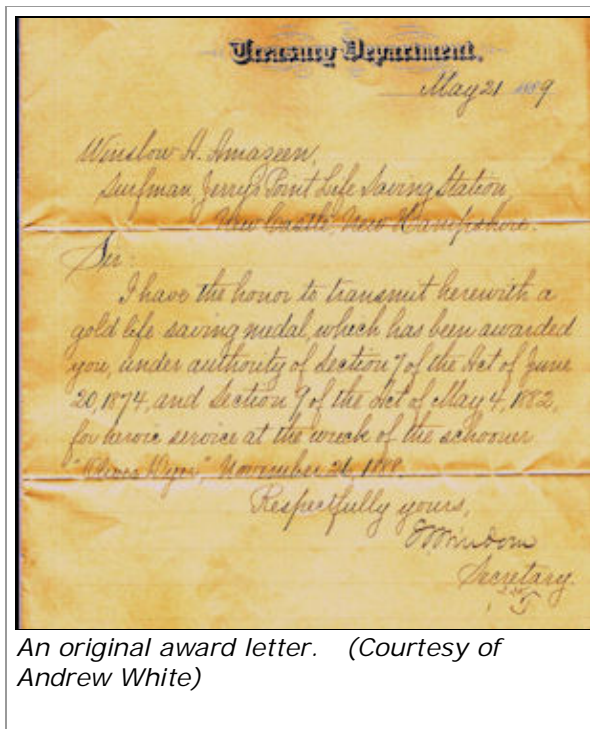 Treasury Department,
May 21 1889
Winslow A. Amazeen,
Surfman, Jerry's Point Life Saving Station,
New Castle, New Hampshire.
Sir:
I have the honor to transmit herewith a
gold life saving medal, which has been awarded
you, under authority of Section 7 of the Act of June
20, 1874, and Section 9 of the Act of May 4, 1882,
for heroic service at the wreck of the schooner
"Oliver Dyer", November 26, 1888.
Respectfully yours,
Windom
Secretary.
An original award letter. (Courtesy of
Andrew White)